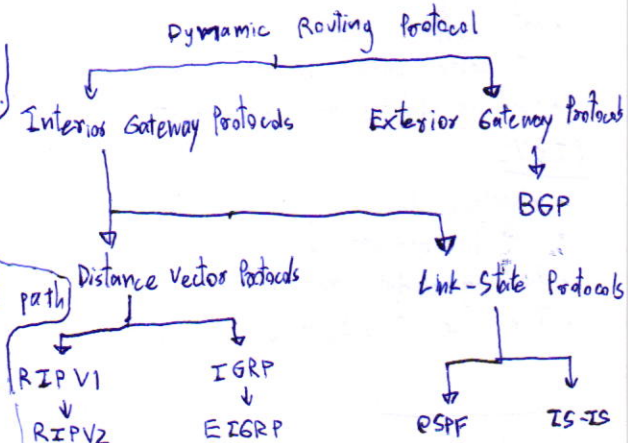 Dynamic Routing Protocol
Interior Gateway Protocols Exterior Gateway Protocols
BGP
Distance Vector Protocols Link-State Protocols
path
RIP V1 IGRP
RIPV2 EIGRP OSPF IS-IS